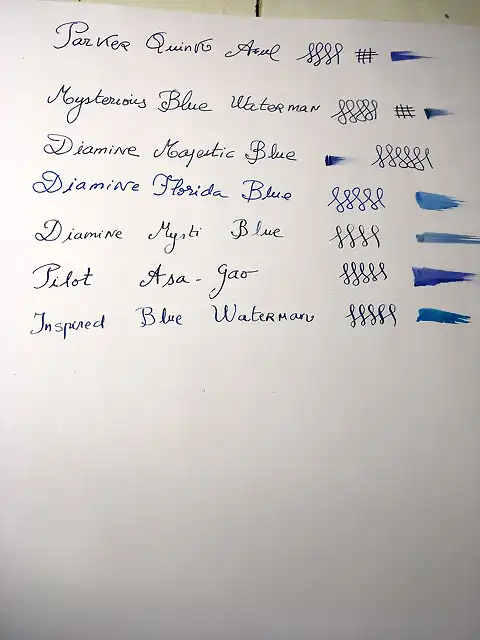 Parker Quink Azul
Mysterious Blue Waterman
Diamine Majestic Blue
Diamine Florida Blue
Diamine Mysti Blue
Pilot Asa-gao
Inspired Blue Waterman